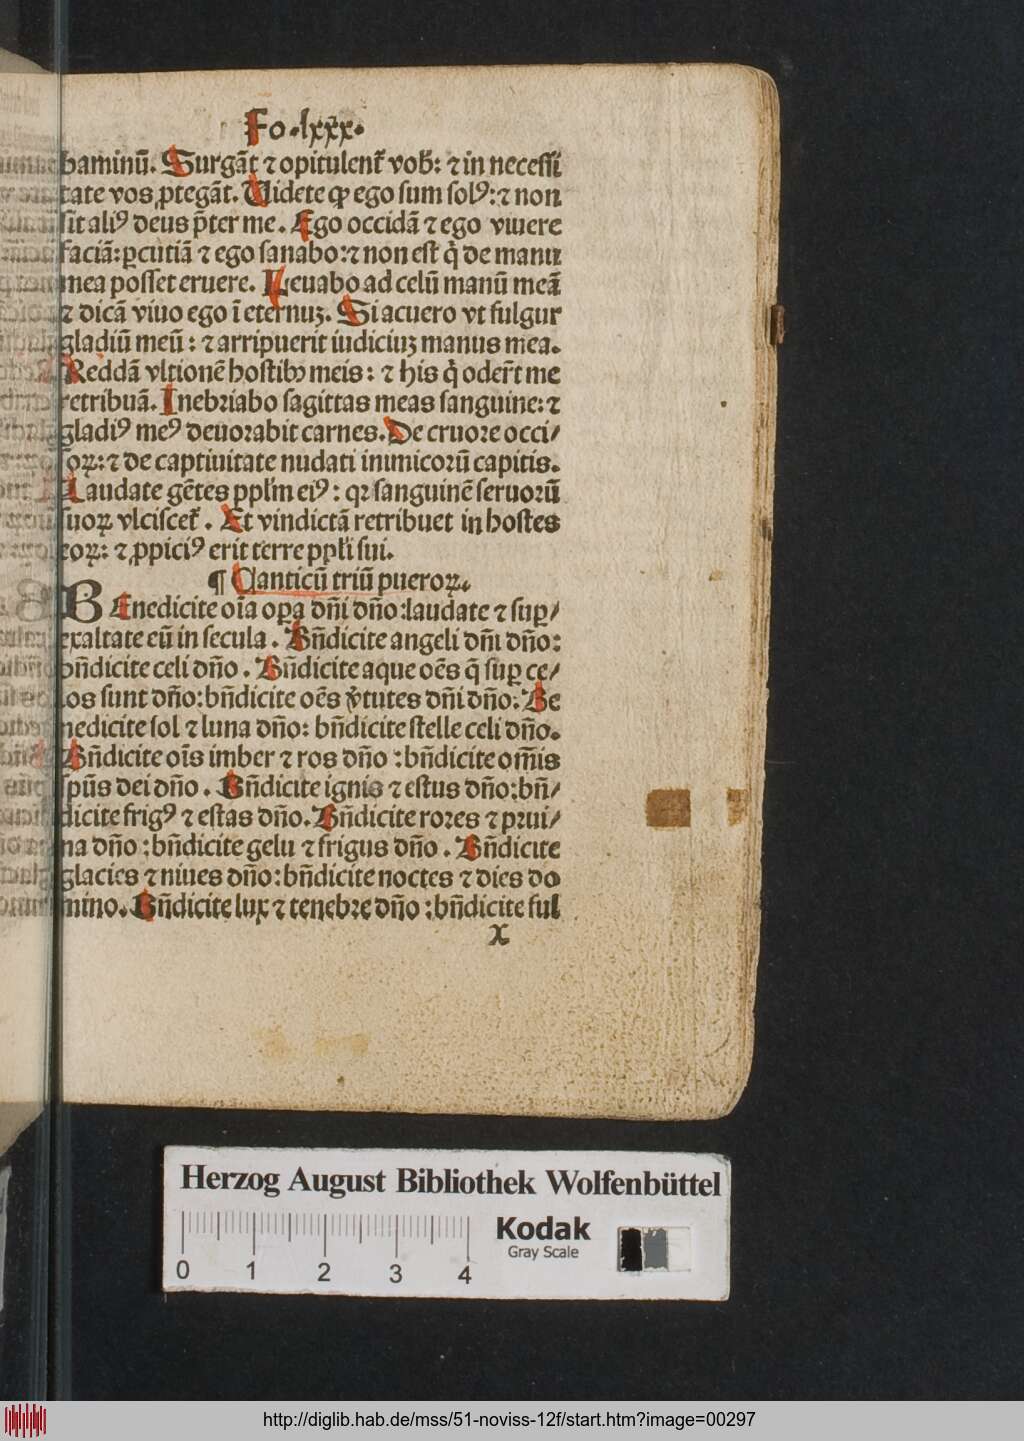 Fo.lxxx.
baminū. Surgāt ⁊ opitulent̄ vob̄: ⁊ in necessi
tate vos ꝓtegāt. Uidete ꝙ ego sum solꝰ: ⁊ non
sit aliꝰ deus p̄ter me. Ego occidā ⁊ ego viuere
faciā: ꝑcutiā ⁊ ego sanabo: ⁊ non est q̇ de manu
mea posset eruere. Leuabo ad celū manū meā
⁊ dicā viuo ego ī eternuʒ. Si acuero vt fulgur
gladiū meū: ⁊ arripuerit iudiciuʒ manus mea.
Reddā vltionē hostibꝰ meis: ⁊ his q̇ oder̄t me
retribuā. Inebriabo sagittas meas sanguine: ⁊
gladiꝰ meꝰ deuorabit carnes. De cruore occi/
soꝝ: ⁊ de captiuitate nudati inimicorū capitis.
Laudate gētes ppl̄m eiꝰ: qꝛ sanguinē seruorū
suoꝝ vlciscet̄. Et vindictā retribuet in hostes
eoꝝ: ⁊ ꝓpiciꝰ erit terre ppl̄i sui.
¶ Canticū triū pueroꝝ.
BEnedicite oīa oꝑa dn̄i dn̄o: laudate ⁊ suꝑ/
exaltate eū in secula. Bn̄dicite angeli dn̄i dn̄o:
bn̄dicite celi dn̄o. Bn̄dicite aque oēs q̄ suꝑ ce/
los sunt dn̄o: bn̄dicite oēs v̄tutes dn̄i dn̄o. Be
nedicite sol ⁊ luna dn̄o: bn̄dicite stelle celi dn̄o.
Bn̄dicite oīs imber ⁊ ros dn̄o: bn̄dicite om̄is
spūs dei dn̄o. Bn̄dicite ignis ⁊ estus dn̄o: bn̄/
dicite frigꝰ ⁊ estas dn̄o. Bn̄dicite rores ⁊ prui/
na dn̄o: bn̄dicite gelu ⁊ frigus dn̄o. Bn̄dicite
glacies ⁊ niues dn̄o: bn̄dicite noctes ⁊ dies do
mino. Bn̄dicite lux ⁊ tenebre dn̄o: bn̄dicite ful
x
Herzog August Bibliothek Wolfenbüttel
Kodak
Gray Scale
0 1 2 3 4
http://diglib.hab.de/mss/51-noviss-12f/start.htm?image=00297